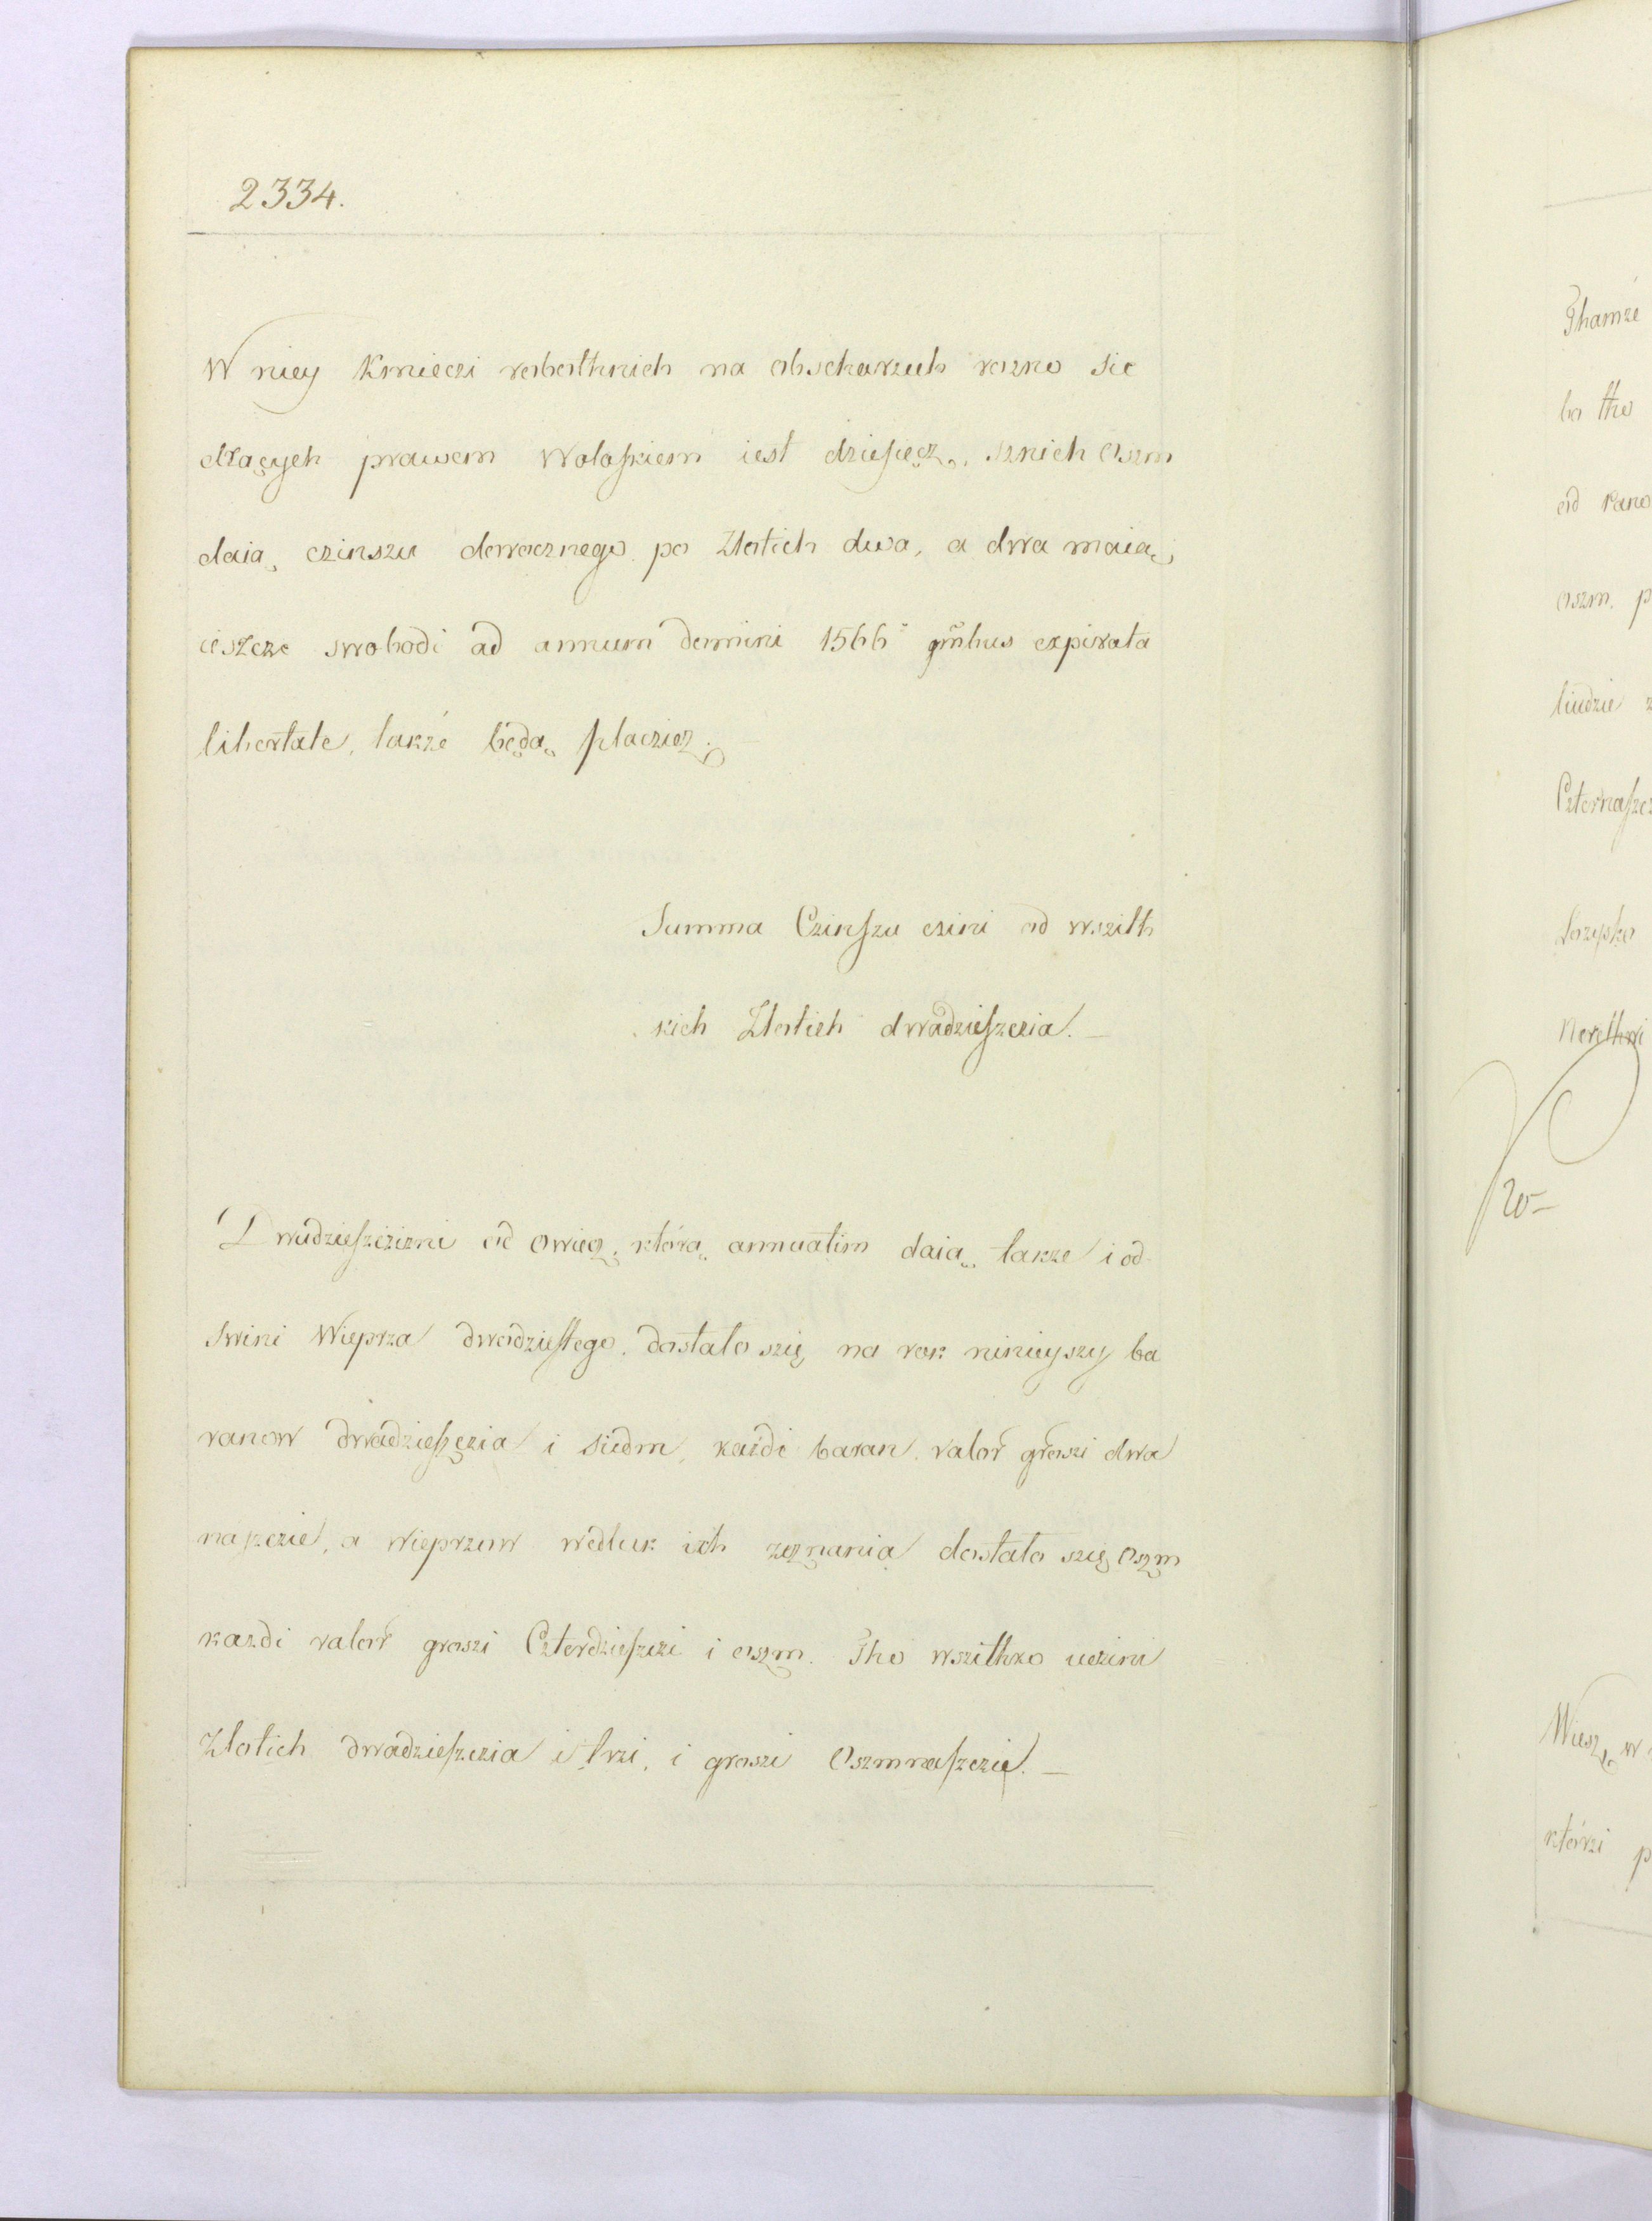 2334.
W niey Kmieczi robothnich na obscharzuh rozno sie
dzących prawem Wołoskiem iest dziesięcz, sznich oszm
daią czinszu dorocznego po Złotich dwa, a dwa maią
iescze swobodi ad annum domini 1566 qũibus expirata
libertate, takze będą płaczicz.
Summa Czinszu czini od wszith
kich Złotich dwadzieszczia. —
Dwudzieszczizini od owiecz, którą annuatim daią, takze i od
swini Wieprza dwadziestego. Dostało szię na rok ninieyszy ba
ranow dwadzieszczia i siedm, każdi baran valor groszi dwa
naszczie, a wieprzow wedluk ich zeznania dostało szię oszm
kazdi valor groszi Czterdzieszczi i oszm. Tho wszithko uczini
Złotich dwadzieszczia i trzi, i groszi Oszmnaszczie. —
Thamze
bo tho
od rano
oszm. p
ludzie z
Czternaszcz
Nerethwi
Wiesz, w
którzi p